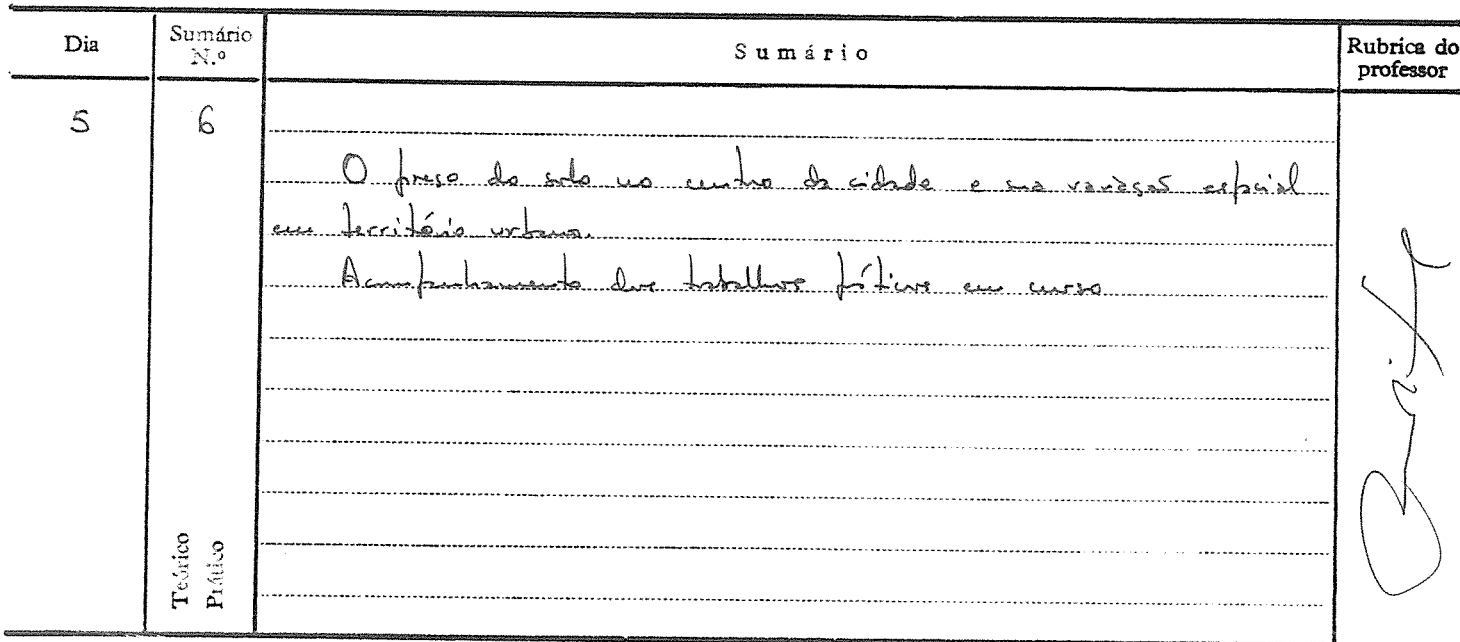 Dia
Sumário N.º
Sumário
Rubrica do professor
5
6
O preço do solo no centro da cidade e sua variação espacial
em território urbano.
Acompanhamento dos trabalhos práticos em curso
Teórico
Prático